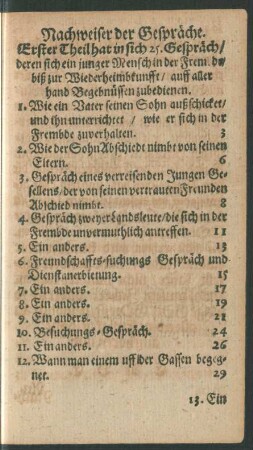 Nachweiser der Gespräche.
Erster Theil hat in sich 25. Gespräch/
deren sich ein junger Mensch in der Frembde/
biß zur Wiederheimbkunfft/ auff aller
hand Begebnüssen zubedienen.
1. Wie ein Vater seinen Sohn außschicket/
und ihn unterrichtet/ wie er sich in der
Frembde zuverhalten. 3
2. Wie der Sohn Abschied nimbt von seinen
Eltern. 6
3. Gespräch eines verreisenden Jungen Ge-
sellens/ der von seinen vertrauten Freunden
Abschied nimbt. 8
4. Gespräch zweyer Landsleute/ die sich in der
Frembde unvermuthlich antreffen. 11
5. Ein anders. 13
6. Freundschaffts-suchungs Gespräch und
Dienstanerbietung. 15
7. Ein anders. 17
8. Ein anders. 19
9. Ein anders. 21
10. Besuchungs-Gespräch. 24
11. Ein anders. 26
12. Wann man einem uff der Gassen begeg-
net. 29
13. Ein